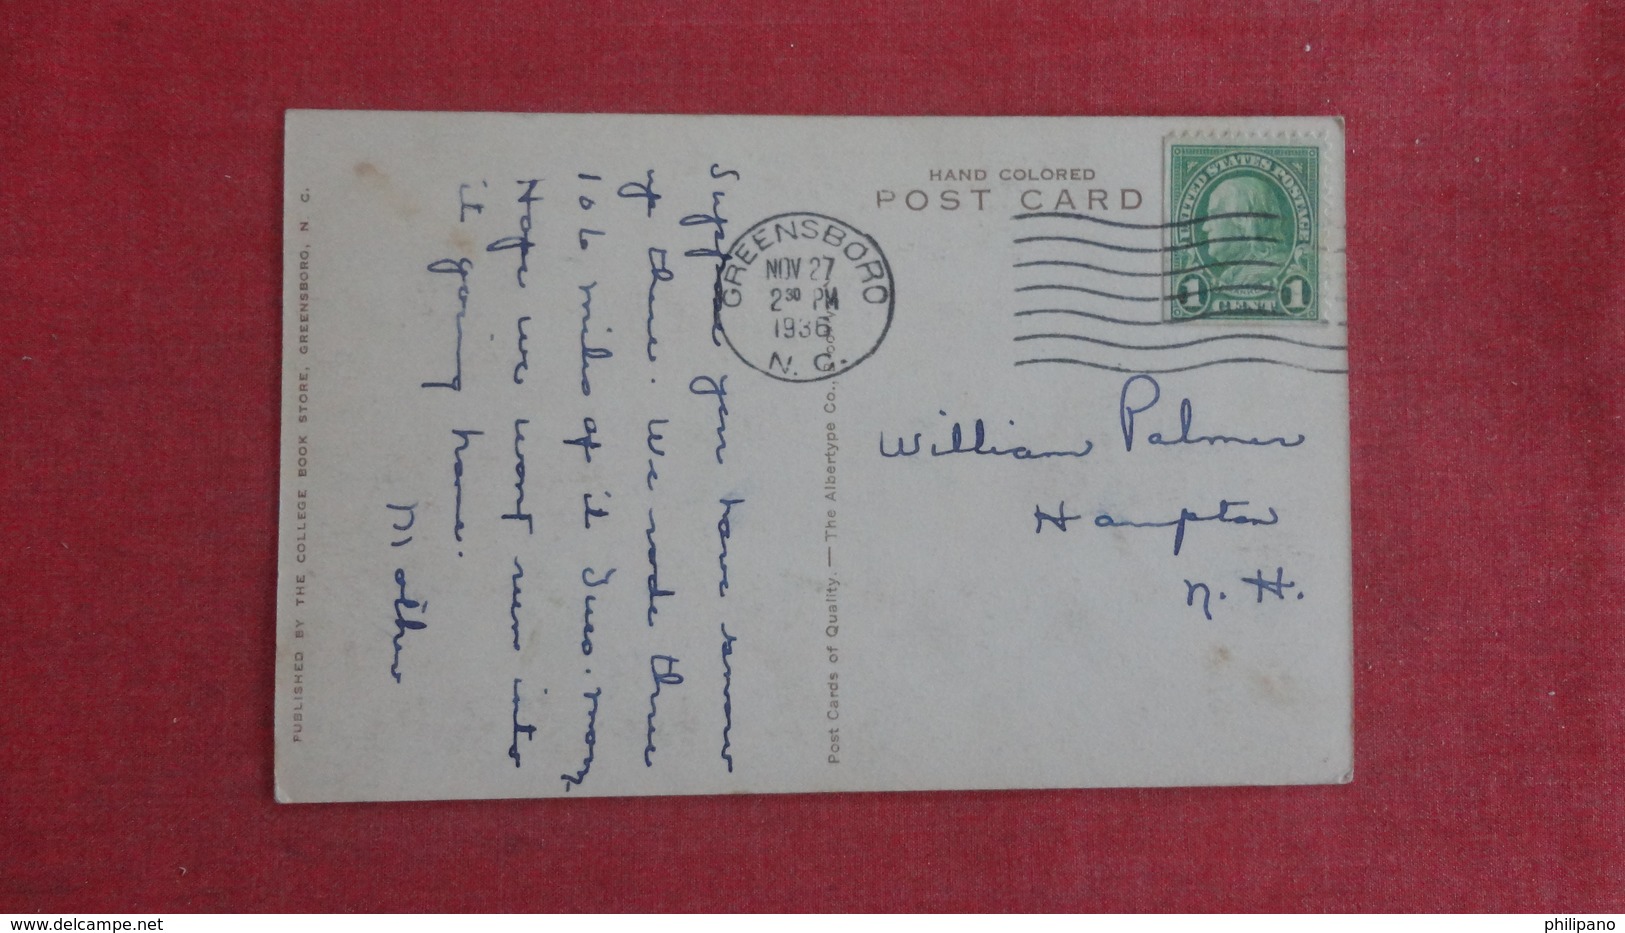 HAND COLORED
POST CARD
UNITED STATES POSTAGE
1 CENT 1
GREENSBORO
NOV 27
2 30 PM
1936
N. C.
Suppose you have snow
up there. We rode thru
106 miles of it Tues. morn.
Hope we wont run into
it going home.
Mother
William Palmer
Hampton
N. H.
Post Cards of Quality. — The Albertype Co.,
PUBLISHED BY THE COLLEGE BOOK STORE, GREENSBORO, N. C.
delcampe.net
philipano